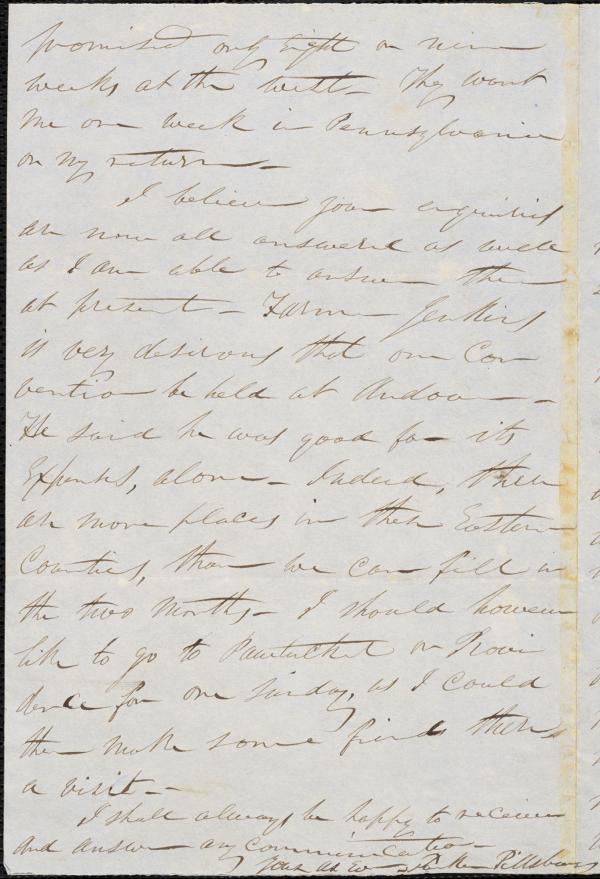 promised only eight or nine
weeks at the west - They want
me one week in Pennsylvania
on my return -
I believe your enquiries
are now all answered as well
as I am able to answer them
at present - Farmer Jenkins
is very desirous that one Con
vention be held at Andover -
He said he was good for its
Expenses, alone - Indeed, there
are more places in these Eastern
Counties, than we can fill in
the two months - I should however
like to go to Pawtucket or Provi
dence for one Sunday, as I could
then make some friends there
a visit -
I shall always be happy to receive
and answer any communication -
Yours as ever Parker Pillsbury